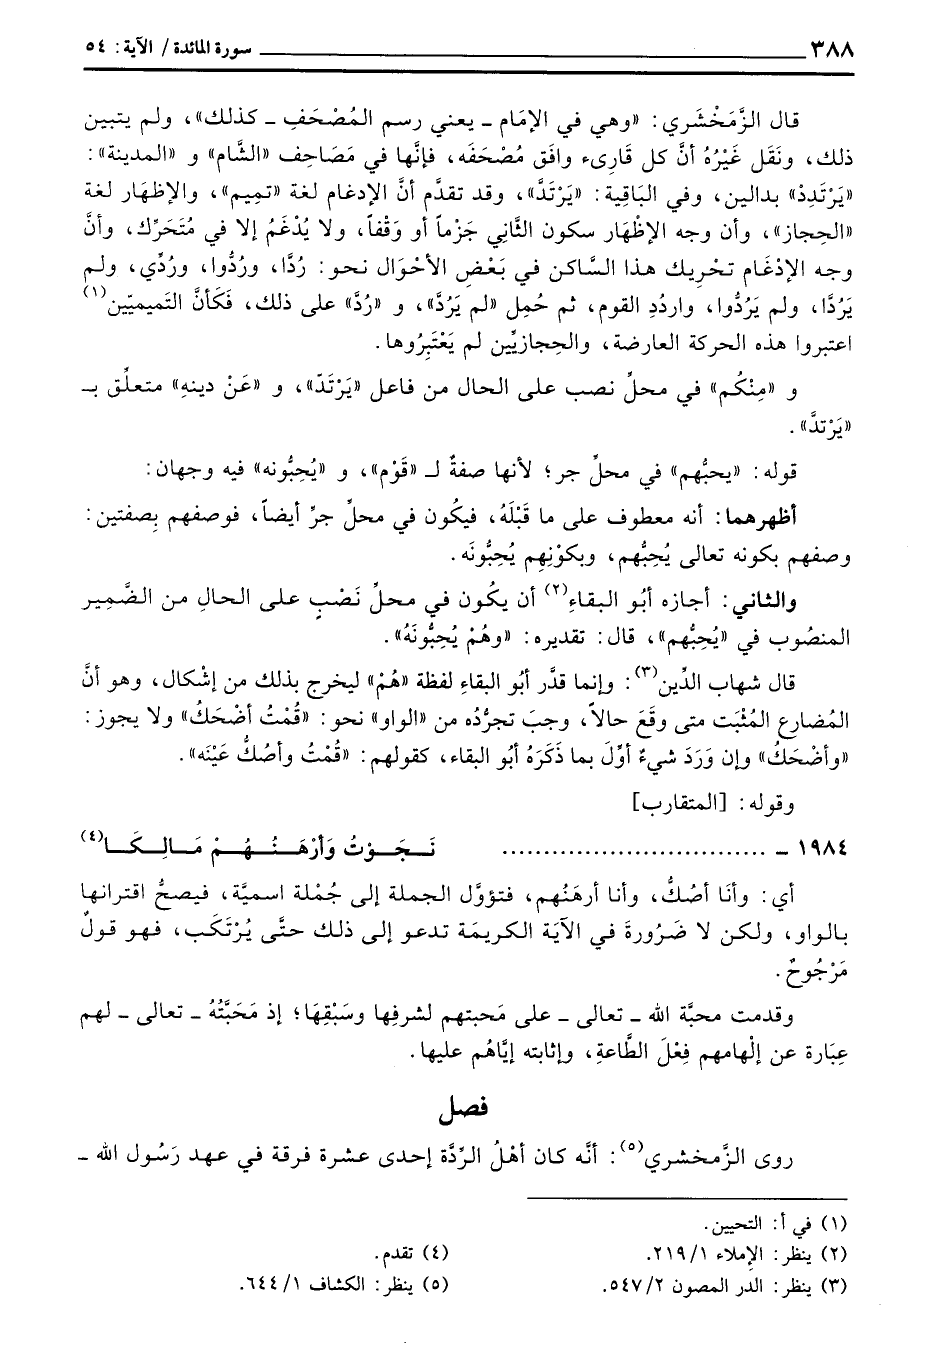 ٣٨٨ سورة المائدة / الآية: ٥٤
قال الزَّمَخْشَري: «وهي في الإمَام ـ يعني رسم المُصْحَفِ ـ كذلك»، ولم يتبين
ذلك، ونَقَل غَيْرُهُ أنَّ كل قارىء وافَق مُصْحَفَه، فإنَّها في مَصَاحِف «الشَّام» و «المدينة»:
«يَرْتَدِدْ» بدالين، وفي البَاقِية: «يَرْتَدَّ»، وقد تقدَّم أنَّ الإدغام لغة «تميم»، والإظهَار لغة
«الحِجاز»، وأن وجه الإظْهَار سكون الثَّاني جَزْماً أو وَقْفاً، ولا يُدْغَمُ إلا في مُتَحَرِّك، وأنَّ
وجه الإدْغَام تحْرِيك هذا السَّاكن في بَعْضِ الأحْوَال نحو: رُدَّا، ورُدُّوا، ورُدِّي، ولم
يَرُدَّا، ولم يَرُدُّوا، واردُدِ القوم، ثم حُمِل «لم يَرُدَّ»، و «رُدَّ» على ذلك، فَكَأنَّ التَّميميّين(١)
اعتبروا هذه الحركة العارضة، والحِجازيِّين لم يَعْتَبِرُوها.
و «مِنْكُم» في محلِّ نصب على الحال من فاعل «يَرْتَدّ»، و «عَنْ دينهِ» متعلِّق بـ
«يَرْتدَّ».
قوله: «يحبُّهم» في محلِّ جر؛ لأنها صفةٌ لـ «قَوْم»، و «يُحِبُّونه» فيه وجهان:
أظهرهما: أنه معطوف على ما قَبْلَهُ، فيكُون في محلِّ جرِّ أيضاً، فوصفهم بِصفتين:
وصفهم بكونه تعالى يُحِبُّهم، وبكوْنِهِم يُحِبُّونَه.
والثاني: أجازه أبُو البقاءِ(٢) أن يكُون في محلِّ نَصْبٍ على الحالِ من الضَّمِير
المنصُوب في «يُحِبُّهم»، قال: تقديره: «وهُمْ يُحِبُّونَهُ».
قال شهاب الدِّين(٣): وإنما قدَّر أبُو البقاءِ لفظة «هُمْ» ليخرج بذلك من إشْكال، وهو أنَّ
المُضارع المُثْبَت متى وقَعَ حالاً، وجبَ تجرُّدُه من «الواو» نحو: «قُمْتُ أضْحَكُ» ولا يجوز:
«وأضْحَكُ» وإن وَرَدَ شيءٌ أوِّلَ بما ذَكَرَهُ أبُو البقاء، كقولهم: «قُمْتُ وأصُكُّ عَيْنَه».
وقوله: [المتقارب]
١٩٨٤ ـ ................................ نَـجَـوْتُ وَأرْهَـنُـهُـمْ مَـالِـكَـا(٤)
أي: وأنَا أصُكُّ، وأنا أرهَنُهم، فتؤوَّل الجملة إلى جُمْلة اسميَّة، فيصحُّ اقترانها
بالواو، ولكن لا ضَرُورةَ في الآيَة الكريمَة تدعو إلى ذلك حتَّى يُرْتَكَب، فهو قولٌ
مَرْجُوحٌ.
وقدمت محبَّة الله ـ تعالى ـ على مَحبتهم لشرفِها وسَبْقِهَا؛ إذ مَحَبَّتُهُ ـ تعالى ـ لهم
عِبَارة عن إلْهامهم فِعْلَ الطَّاعةِ، وإثابته إيَّاهُم عليها.
فصل
روى الزَّمخشري(٥): أنَّه كان أهْلُ الرِّدَّة إحدى عشرة فرقة في عهد رَسُول الله ـ
(١) في أ: التحيين.
(٢) ينظر: الإملاء ٢١٩/١.
(٣) ينظر: الدر المصون ٥٤٧/٢.
(٤) تقدم.
(٥) ينظر: الكشاف ٦٤٤/١.